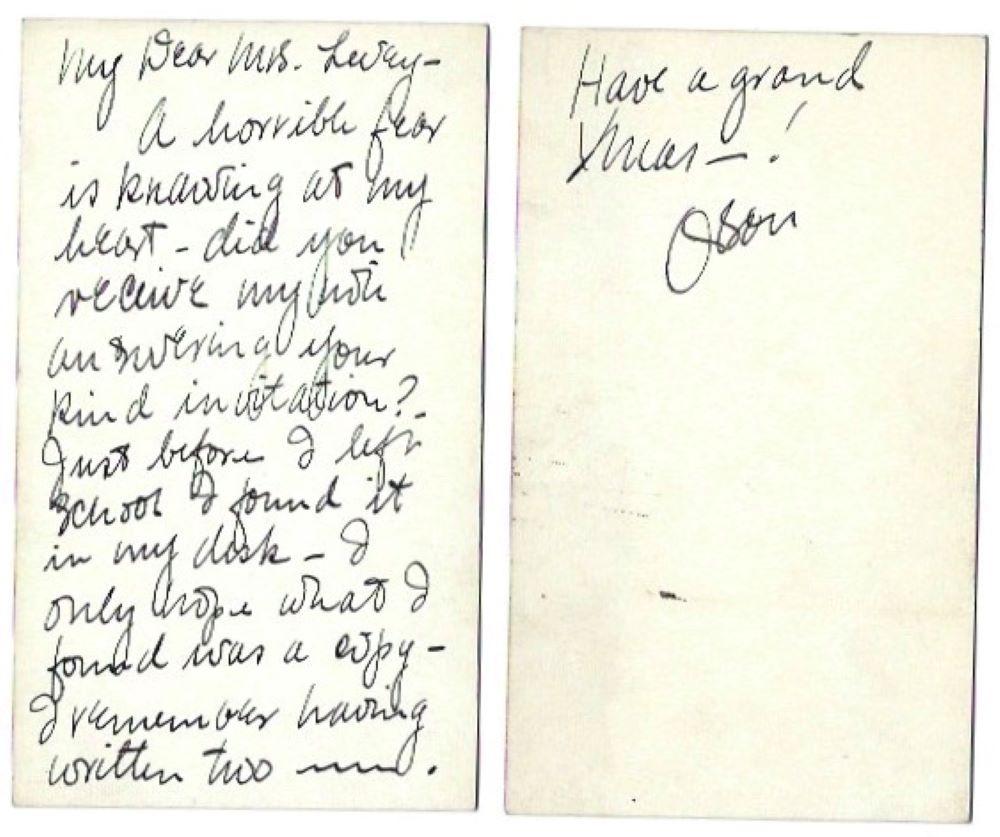 My Dear Mrs. Levey-
A horrible fear
is knawing at my
heart - did you
receive my note
answering your
kind invitation?
Just before I left
school I found it
in my desk - I
only hope what I
found was a copy -
I remember having
written two
Have a grand
Xmas - !
Orson